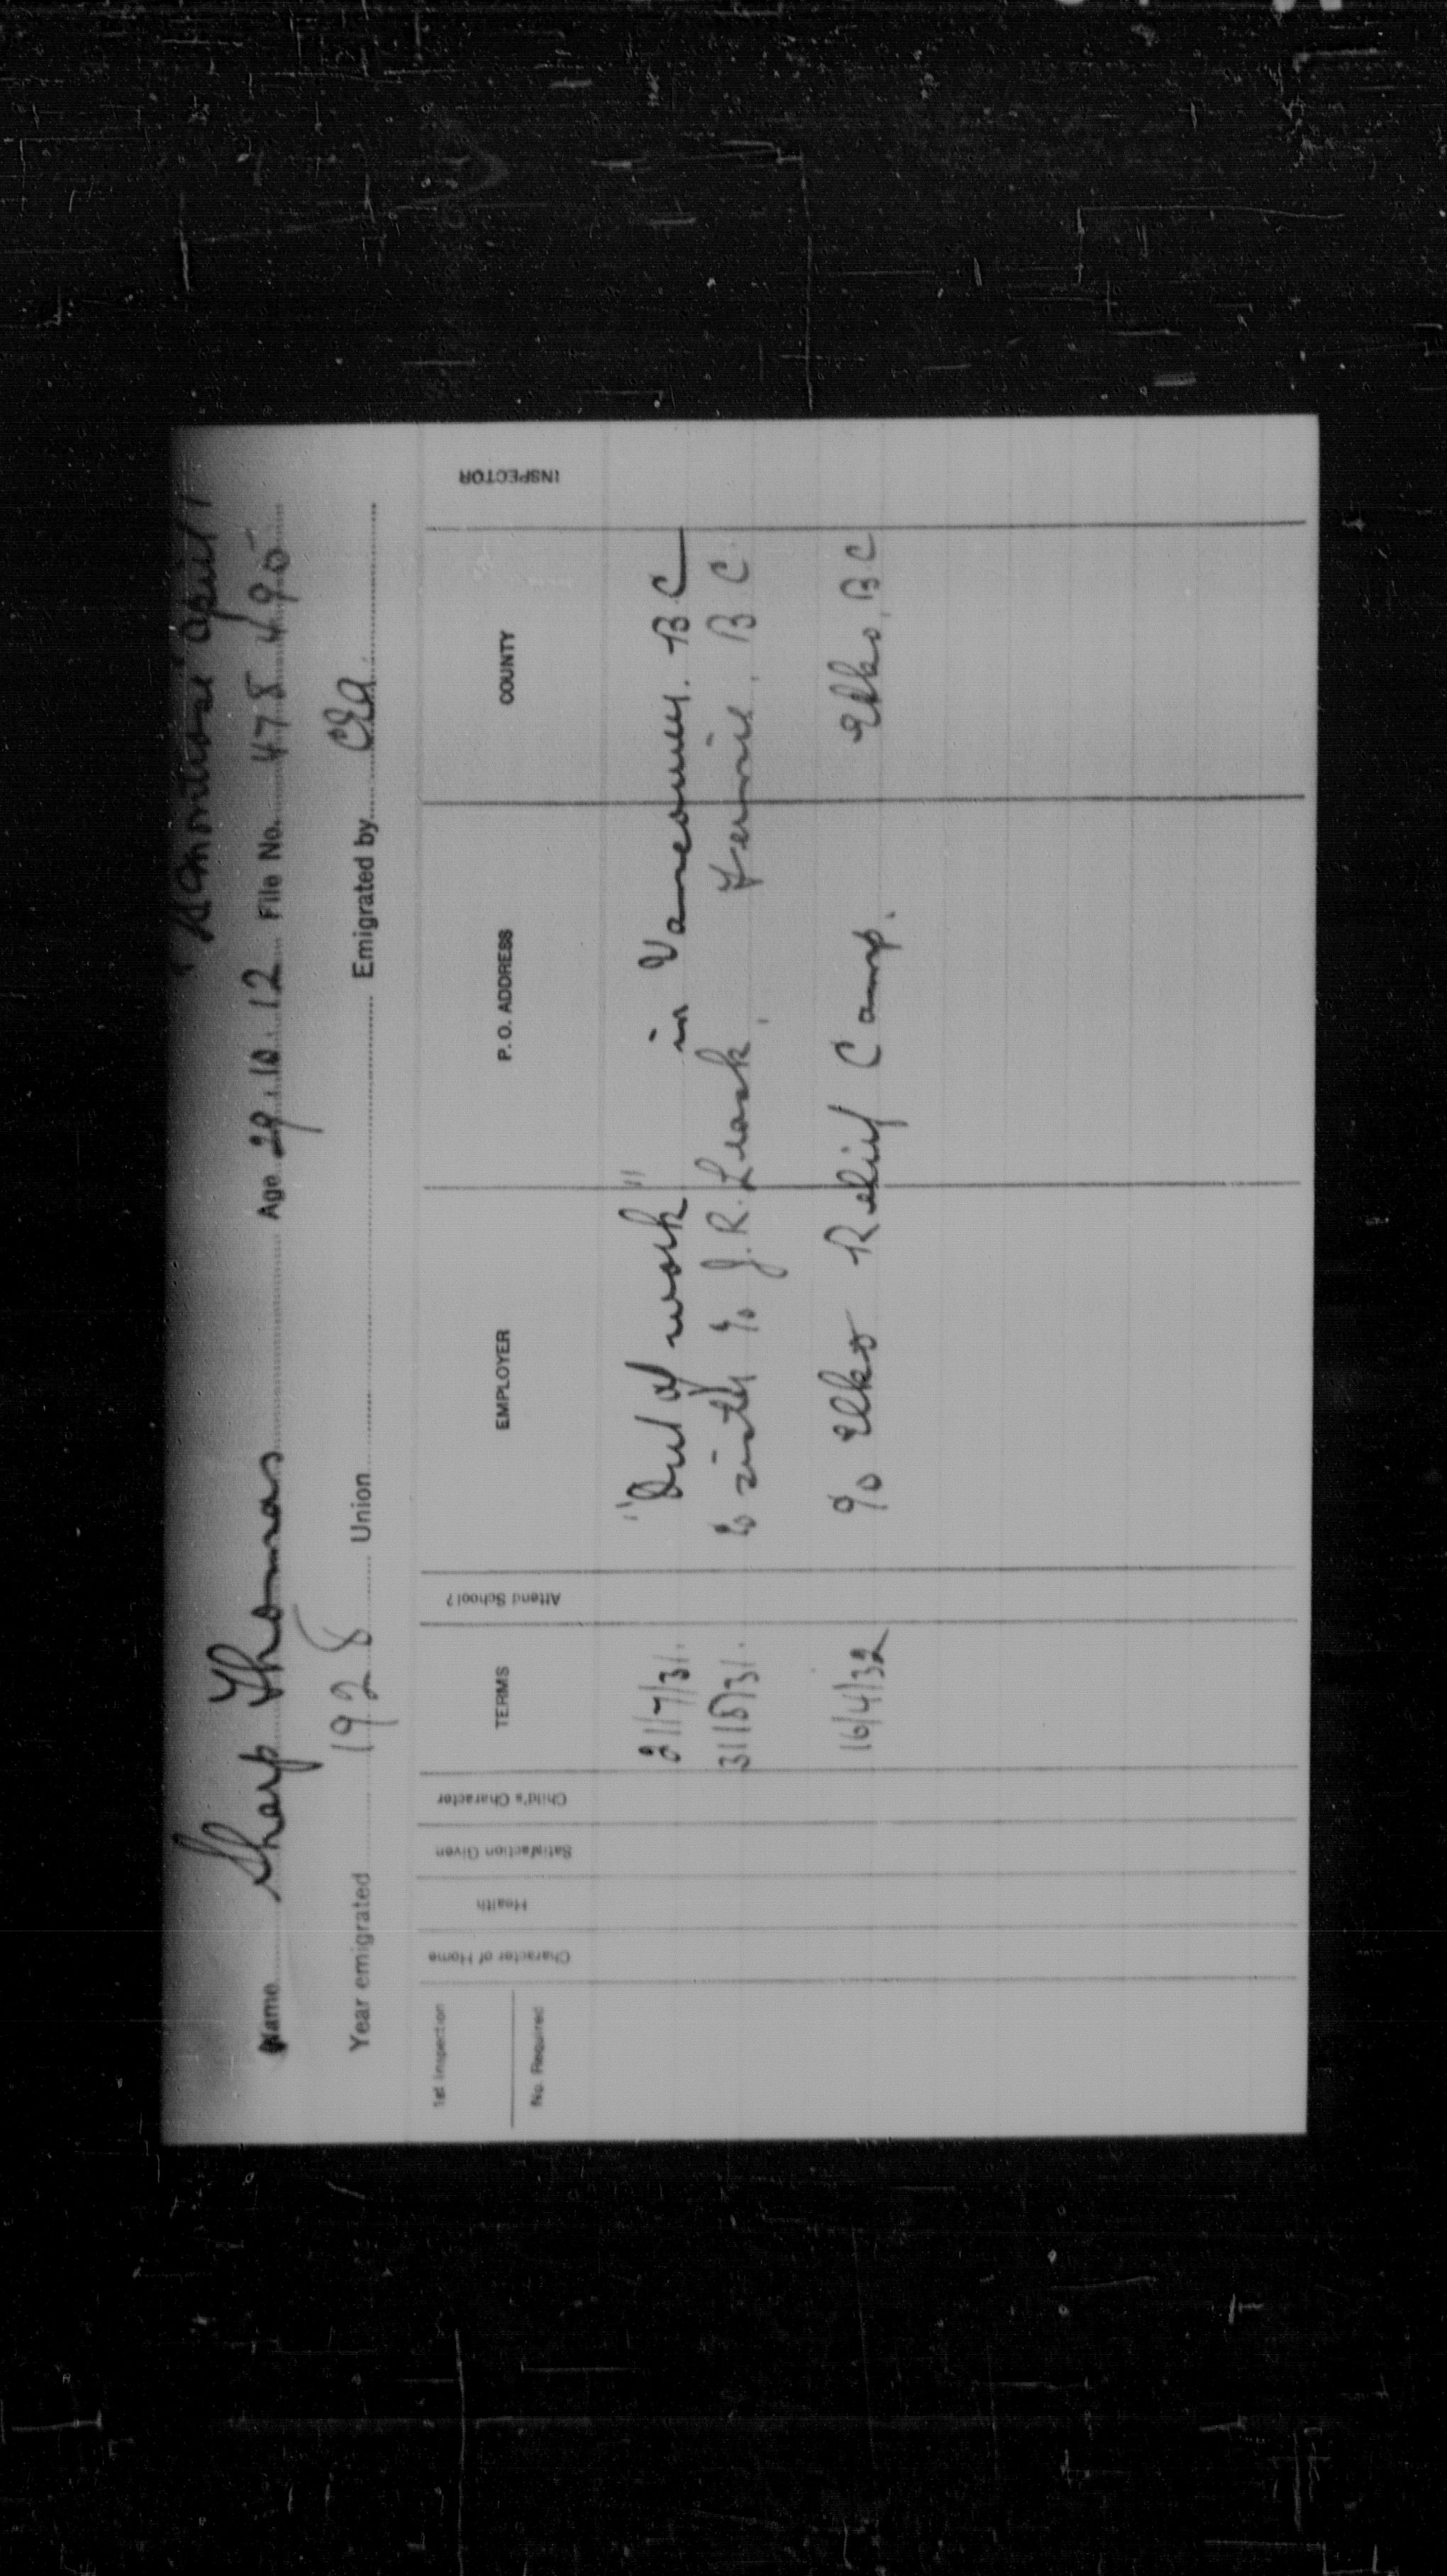 "Montrose" April 1
Name Sharp Thomas Age 29.10.12 File No. 478495
Year emigrated 1928 Union Emigrated by
1st Inspection No. Required Character of Home Health Satisfaction Given Child's Character TERMS Attend School? EMPLOYER P. O. ADDRESS COUNTY INSPECTOR
21/7/31. "Out of work" in Vancouver. B.C
31/8/31. % J. R. Leask, Fernie, B C.
16/4/32 % Elko Relief Camp. Elko, B.C